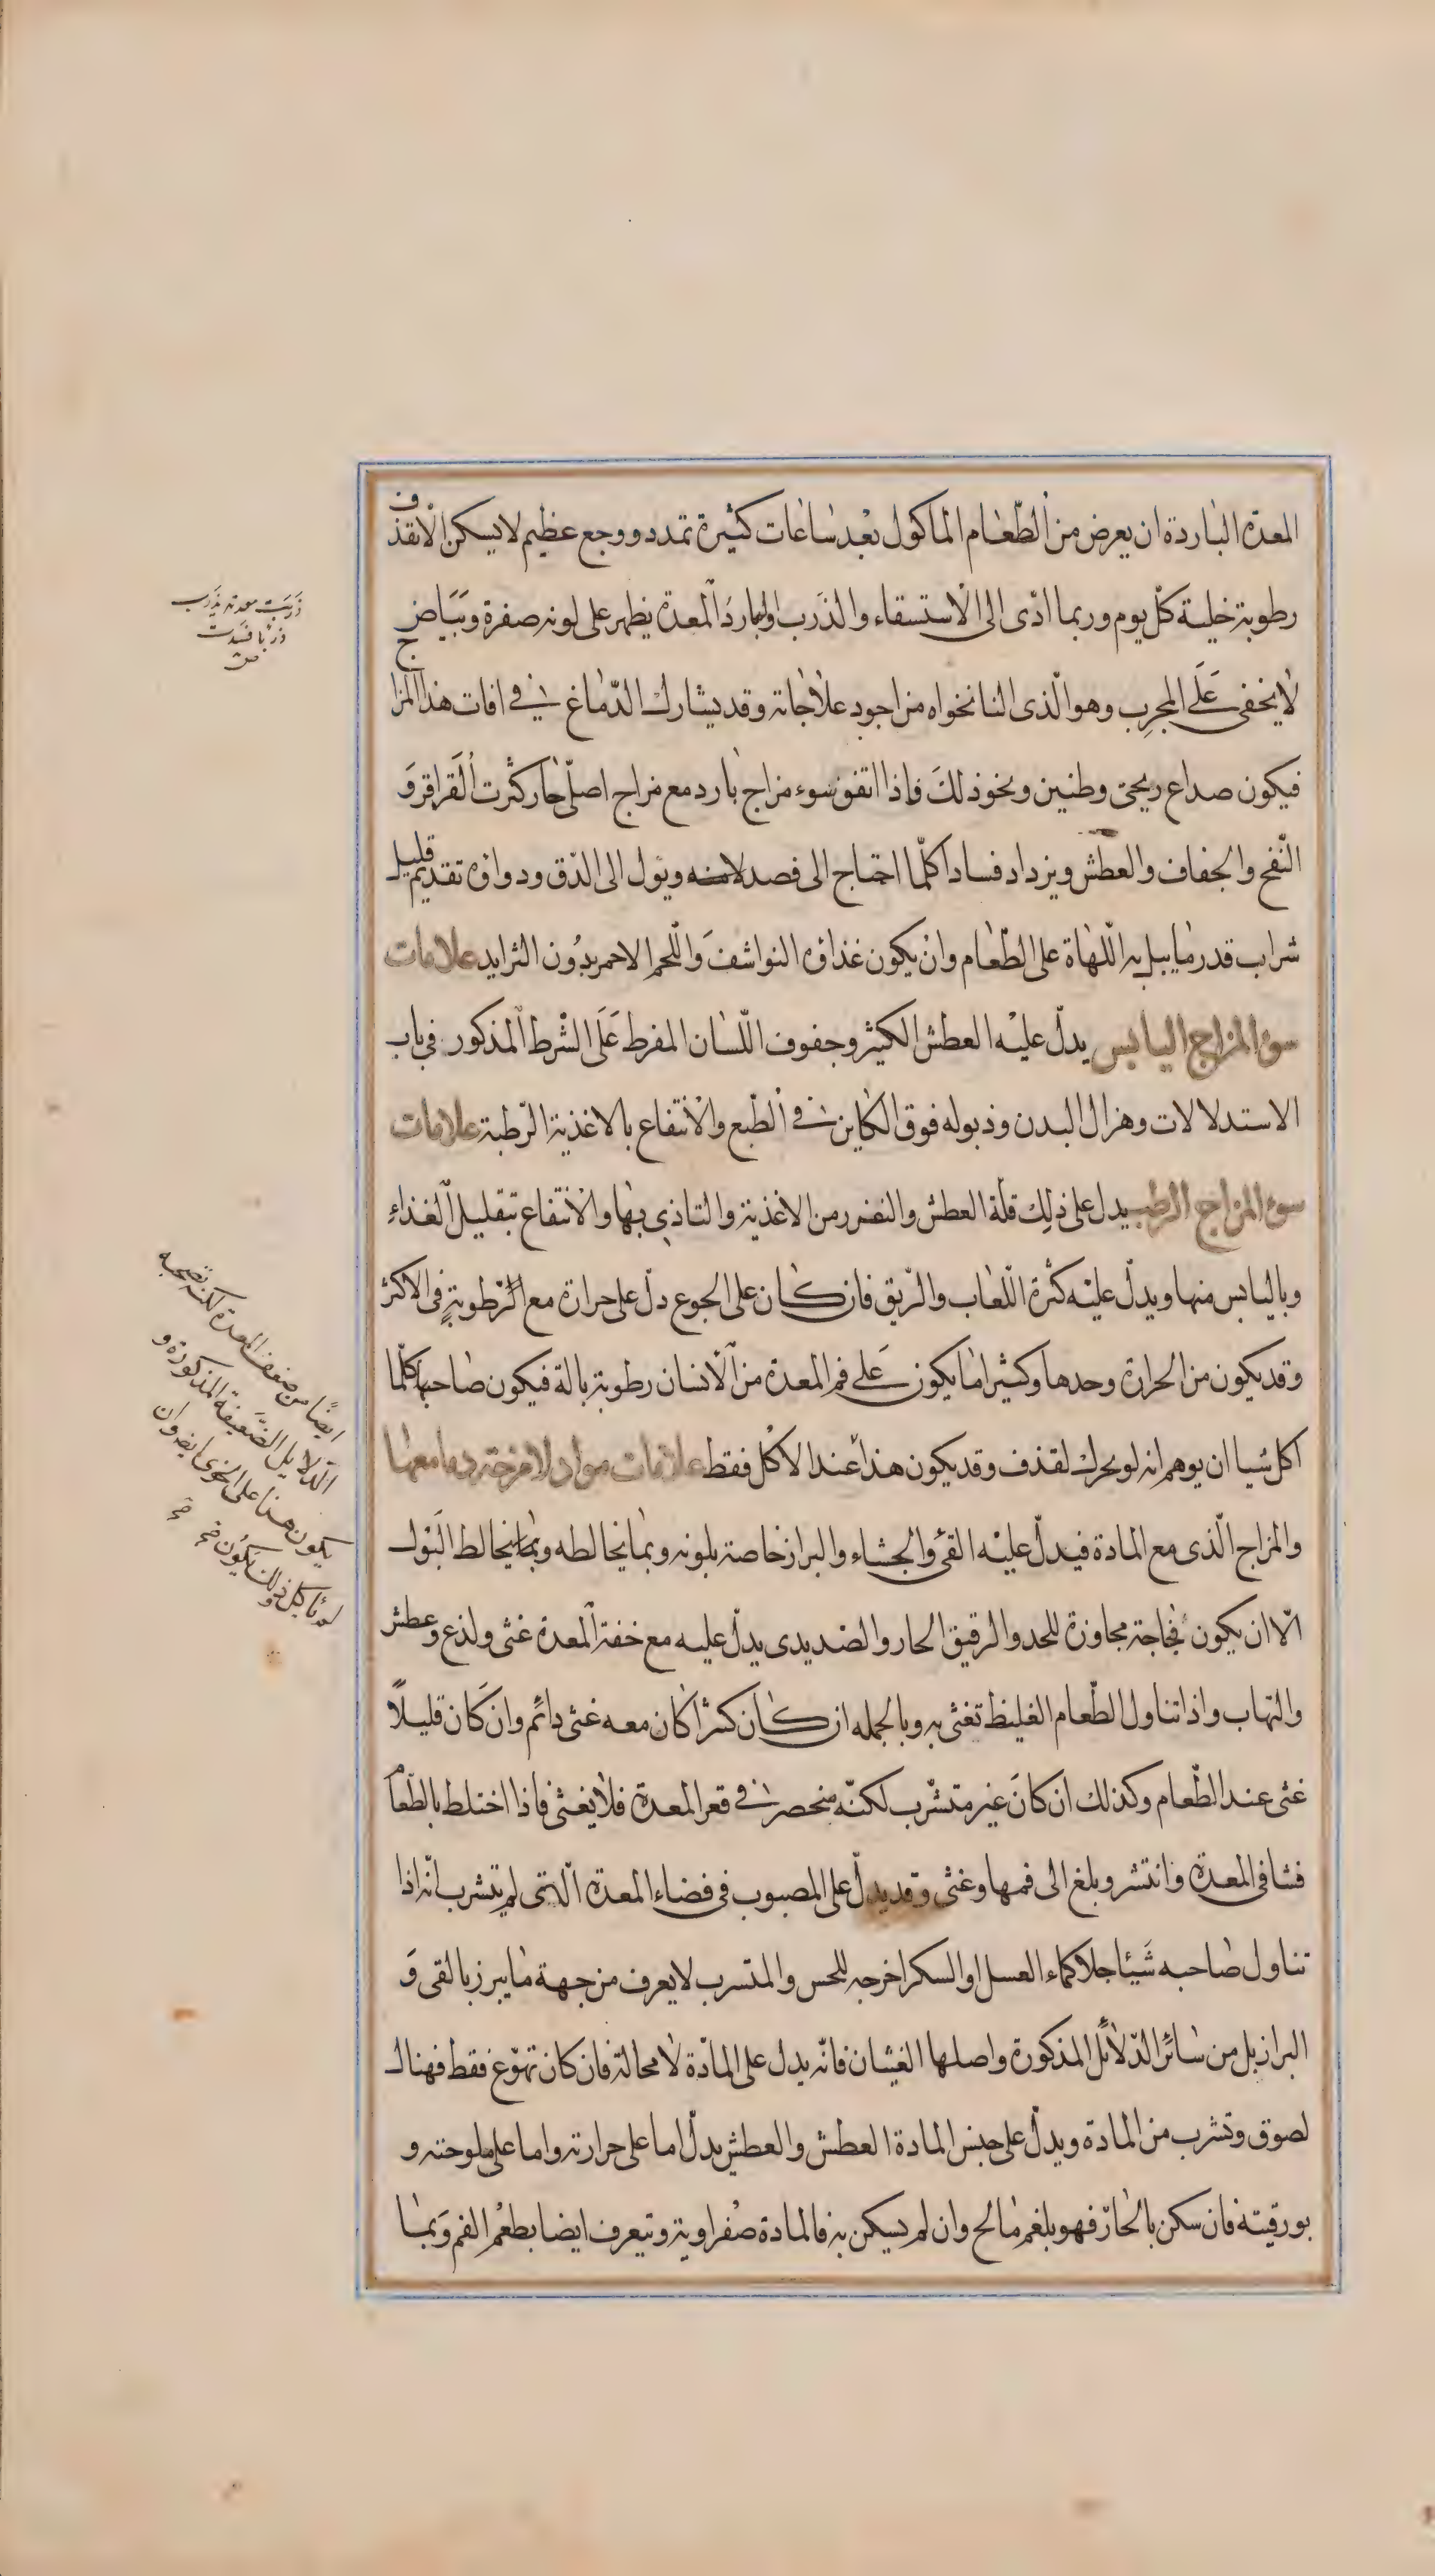 المعدة الباردة ان يعرض من الطّعام الماكول بعْد ساعات كثيرة تمدد ووجع عظيم لا يسكن الا بقذف
رطوبة خلية كلّ يوم وربما ادّى الى الاستسقاء والذرب والبارد المعدة يظهر على لونه صفرة وبَيَاض
لا يخفى عَلَى المجرب وهو الّذى النانخواه من اجود علاجاته وقد يشارك الدّماغ في افات هذا المزاج
فيكون صداع ريحى وطنين ونحو ذلكَ فاذا اتفق سوء مزاج بارد مع مزاج اصلّى حار كثرت القراقر وَ
النّفخ والجفاف والعطش ويزداد فسادا كلّما احتاج الى فصد لامنه ويؤل الى الدّق ودواؤه تقديم قليل
شراب قدر ما يبل به اللّهاة على الطّعام وان يكون غذاؤه النواشف وَاللّحم الاحمر بدُون الثرايد علامات
سوء المزاج اليابس يدلّ عليْه العطش الكثير وجفوف اللّسان المفرط عَلَى الشّرط المذكور فى باب
الاستدلالات وهزال البدن وذبوله فوق الكاين في الطّبع والانتفاع بالاغذية الرّطبة علامات
سوء المزاج الرطب يدل على ذلِك قلّة العطش والنفور من الاغذية والتاذى بها والانتفاع بتقليل الغذاءِ
وباليابس منها ويدلّ عليْه كثرة اللّعاب والرّيق فان كان على الجوع دلّ على حرارة مع الرّطوبةٍ فى الاكثر
وقد يكون من الحرارة وحدها وكثيرا ما يكون عَلى فم المعدة من الانسان رطوبة بالة فيكون صاحبها كلّما
اكل شيا ان يوهم انه لو تحرك لقذف وقد يكون هذا عند الاكل فقط علامات مواد الامزجة وما معها
والمزاج الّذى مع المادة فيدلّ عليْه القئ والجشاء والبراز خاصة بلونه وبما يخالطه وبما يخالط البَوْل
الّا ان يكون لحاجة مجاوزة للحد والرقيق الحار والصديدى يدلّ عليه مع خفة المعدة غثى ولذع وعطش
والتهاب واذا تناول الطّعام الغليظ تغثى به وبالجمله ان كان كثرا كان معه غثى دائم وان كَان قليلًا
غثى عند الطّعام وكذلك ان كانَ غير متشرّب لكنّه منحصر في قعر المعدة فلا يغثى فاذا اختلط بالطّعام
فشا فى المعدة وانتشر وبلغ الى فمها وغثى وقد يدلّ على المصبوب فى فضاء المعدة الّتى لم يتشرب انّه اذا
تناول صاحبه شَيْئا جلا كماء العسل او السكر اخرجه للحس والمتسرب لا يعرف من جهة ما يبرز بالقى وَ
البراز بل من سائر الدّلائل المذكورة واصلها الغيثان فانّه يدل على المادّة لا محالة فان كان تهوّع فقط فهناك
لصوق وتشرب من المادة ويدلّ على جنس المادة العطش والعطش يدلّ اما على حرارته واما على ملوحته و
بورقيته فان سكن بالحارّ فهو بلغم مالح وان لم يسكن به فالمادة صفراوية وتيعرف ايضا بطعْم الفم وَبما
ذَرِبَت معدته يذرب
ذربًا فسَدت
ص
ايضًا من ضعف المعدة لكنه تصحبه
الدّلايل الضّعيفة المذكورة و
يكون هذا على الخوى ايضا وان
لم ياكل وذلك يكون